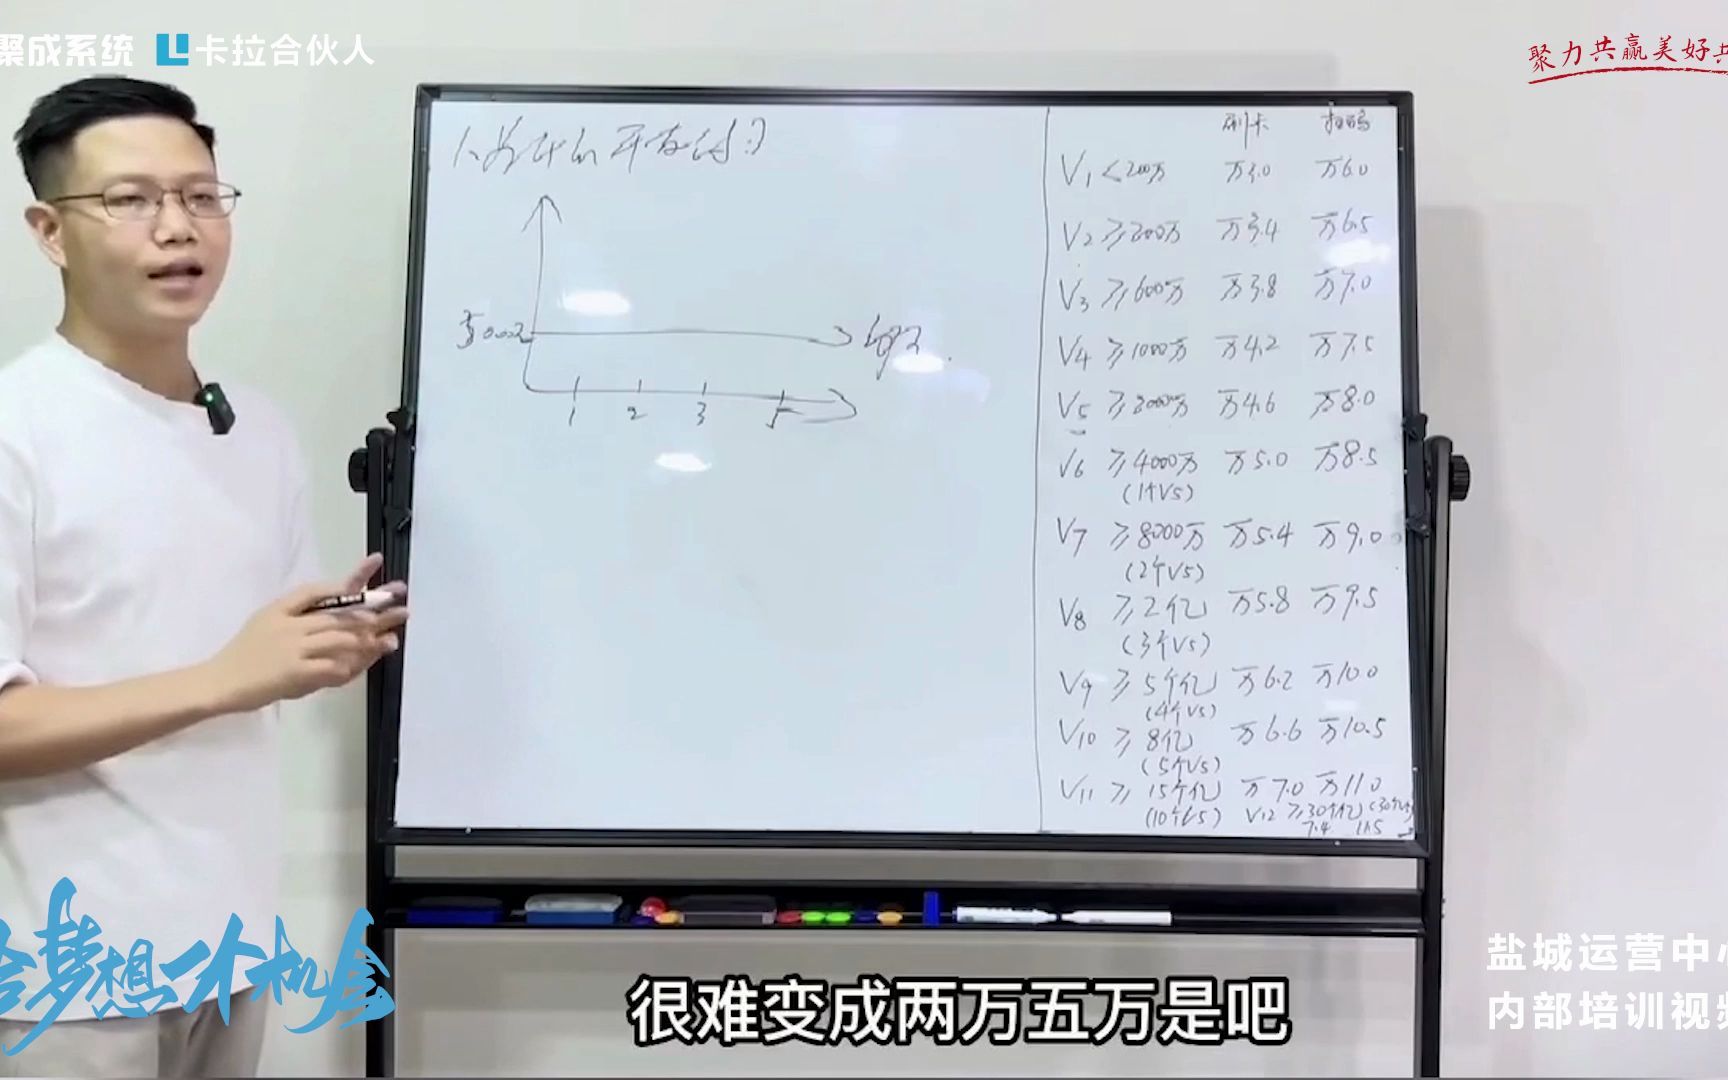 聚成系统 卡拉合伙人
聚力共赢美好共
1、为什么开存the
刷卡 扫码
V1 <200万 万3.0 万6.0
V2 ≥200万 万3.4 万6.5
V3 ≥600万 万3.8 万7.0
V4 ≥1000万 万4.2 万7.5
V5 ≥2000万 万4.6 万8.0
V6 ≥4000万 万5.0 万8.5
(1个V5)
V7 ≥8000万 万5.4 万9.0
(2个V5)
V8 ≥2亿 万5.8 万9.5
(3个V5)
V9 ≥5个亿 万6.2 万10.0
(4个V5)
V10 ≥8亿 万6.6 万10.5
(5个V5)
V11 ≥15个亿 万7.0 万11.0
(10个V5) V12 ≥30个亿 (30个V5)
7.4 11.5
1 2 3 5
给梦想一个机会
盐城运营中心
内部培训视频
很难变成两万五万是吧